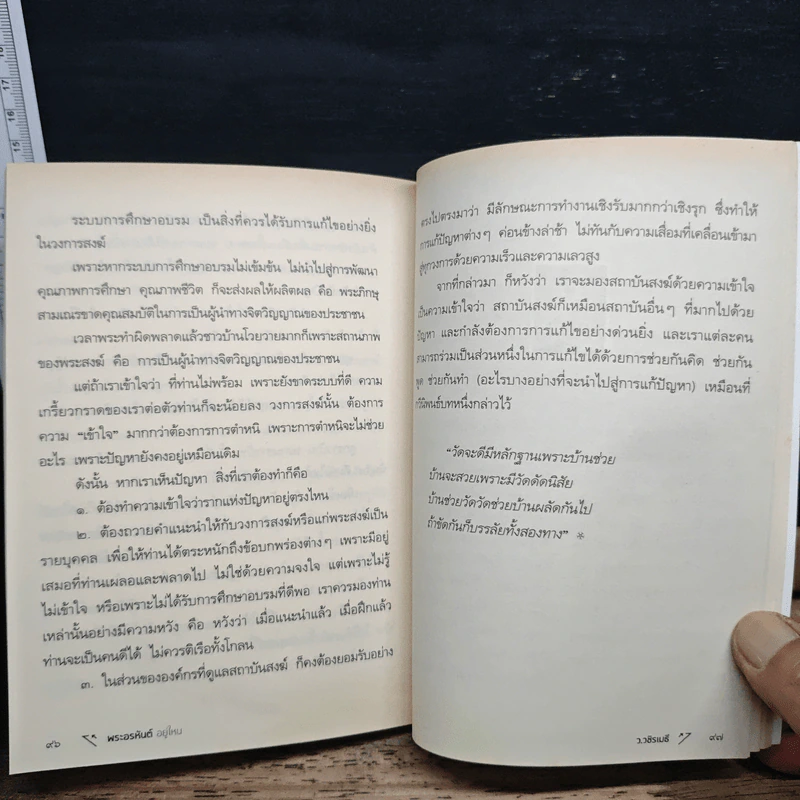 ระบบการศึกษาอบรม เป็นสิ่งที่ควรได้รับการแก้ไขอย่างยิ่ง
ในวงการสงฆ์
เพราะหากระบบการศึกษาอบรมไม่เข้มข้น ไม่นำไปสู่การพัฒนา
คุณภาพการศึกษา คุณภาพชีวิต ก็จะส่งผลให้ผลิตผล คือ พระภิกษุ
สามเณรขาดคุณสมบัติในการเป็นผู้นำทางจิตวิญญาณของประชาชน
เวลาพระทำผิดพลาดแล้วชาวบ้านโวยวายมากก็เพราะสถานภาพ
ของพระสงฆ์ คือ การเป็นผู้นำทางจิตวิญญาณของประชาชน
แต่ถ้าเราเข้าใจว่า ที่ท่านไม่พร้อม เพราะยังขาดระบบที่ดี ความ
เกรี้ยวกราดของเราต่อตัวท่านก็จะน้อยลง วงการสงฆ์นั้น ต้องการ
ความ “เข้าใจ” มากกว่าต้องการการตำหนิ เพราะการตำหนิจะไม่ช่วย
อะไร เพราะปัญหายังคงอยู่เหมือนเดิม
ดังนั้น หากเราเห็นปัญหา สิ่งที่เราต้องทำก็คือ
๑. ต้องทำความเข้าใจว่ารากแห่งปัญหาอยู่ตรงไหน
๒. ต้องถวายคำแนะนำให้กับวงการสงฆ์หรือแก่พระสงฆ์เป็น
รายบุคคล เพื่อให้ท่านได้ตระหนักถึงข้อบกพร่องต่างๆ เพราะมีอยู่
เสมอที่ท่านเผลอและพลาดไป ไม่ใช่ด้วยความจงใจ แต่เพราะไม่รู้
ไม่เข้าใจ หรือเพราะไม่ได้รับการศึกษาอบรมที่ดีพอ เราควรมองท่าน
เหล่านั้นอย่างมีความหวัง คือ หวังว่า เมื่อแนะนำแล้ว เมื่อฝึกแล้ว
ท่านจะเป็นคนดีได้ ไม่ควรติเรือทั้งโกลน
๓. ในส่วนขององค์กรที่ดูแลสถาบันสงฆ์ ก็คงต้องยอมรับอย่าง
๙๖ พระอรหันต์ อยู่ไหน
ตรงไปตรงมาว่า มีลักษณะการทำงานเชิงรับมากกว่าเชิงรุก ซึ่งทำให้
การแก้ปัญหาต่างๆ ค่อนข้างล่าช้า ไม่ทันกับความเสื่อมที่เคลื่อนเข้ามา
สู่ทุกวงการด้วยความเร็วและความเลวสูง
จากที่กล่าวมา ก็หวังว่า เราจะมองสถาบันสงฆ์ด้วยความเข้าใจ
เป็นความเข้าใจว่า สถาบันสงฆ์ก็เหมือนสถาบันอื่นๆ ที่มากไปด้วย
ปัญหา และกำลังต้องการการแก้ไขอย่างด่วนยิ่ง และเราแต่ละคน
สามารถร่วมเป็นส่วนหนึ่งในการแก้ไขได้ด้วยการช่วยกันคิด ช่วยกัน
พูด ช่วยกันทำ (อะไรบางอย่างที่จะนำไปสู่การแก้ปัญหา) เหมือนที่
กวีนิพนธ์บทหนึ่งกล่าวไว้
“วัดจะดีมีหลักฐานเพราะบ้านช่วย
บ้านจะสวยเพราะมีวัดดัดนิสัย
บ้านช่วยวัดวัดช่วยบ้านผลัดกันไป
ถ้าขัดกันก็บรรลัยทั้งสองทาง” *
ว.วชิรเมธี ๙๗
15
17